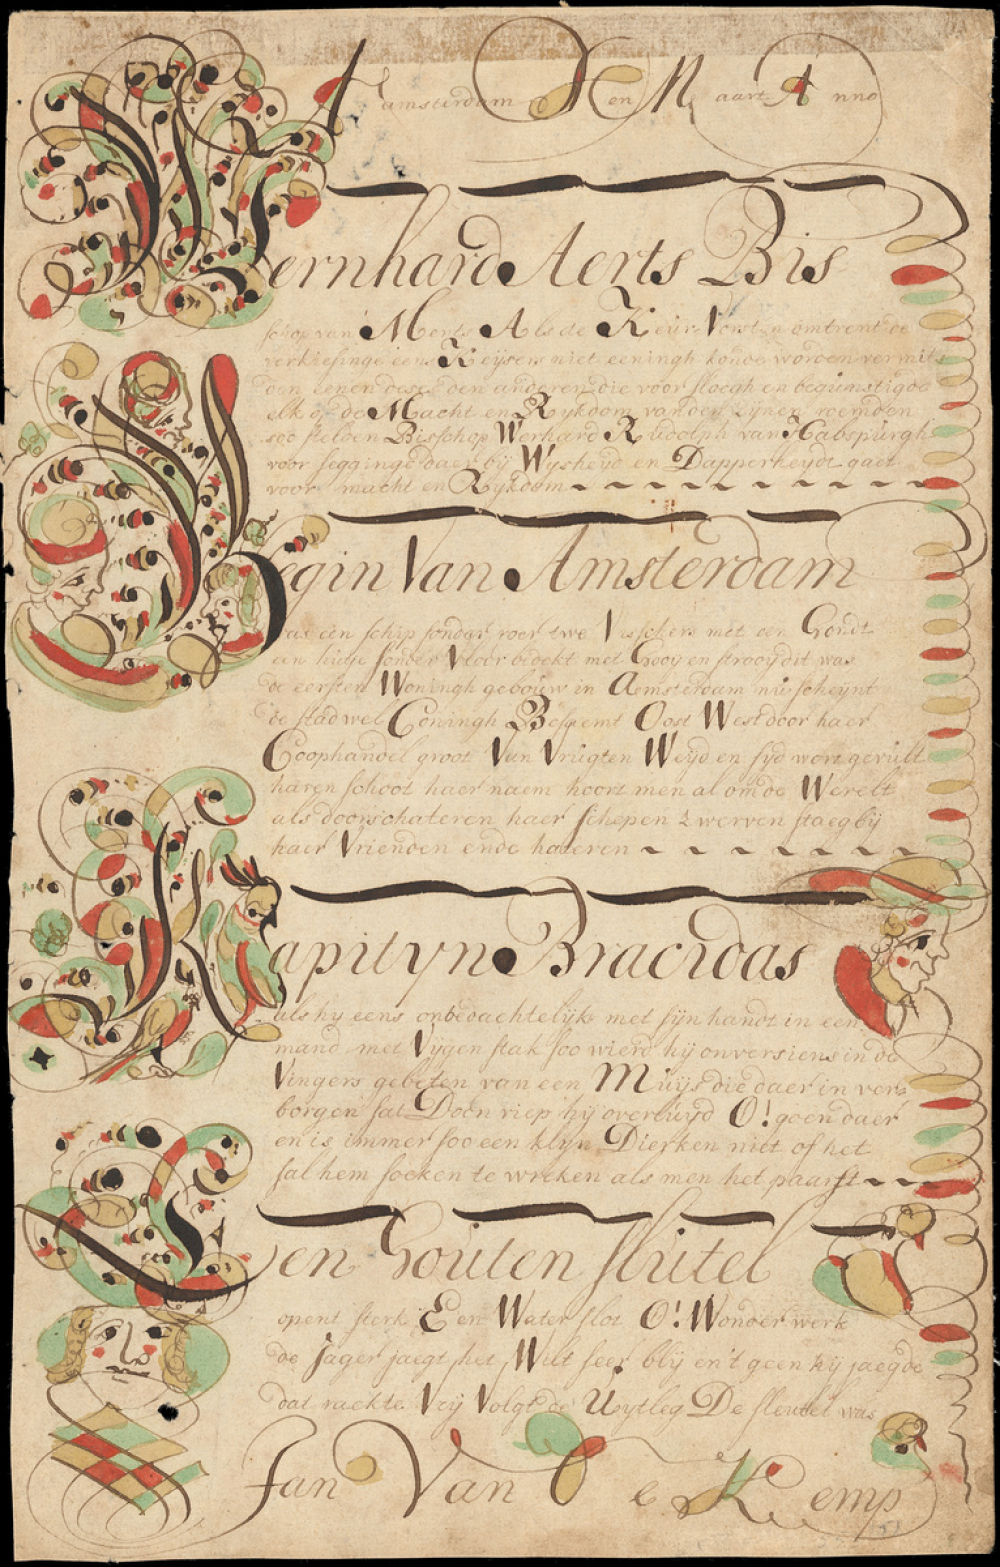 Amsterdam Den Maart Anno
Wernhard Aerts Bis
schop van Ments Als de Keur Vorsten omtrent de
verkiesinge eens Keysers niet eeningh konde worden vermits
den eenen dese den anderen die voor sloegh en begunstigde
elk op de Macht en Rykdom van den zynen roemden
soo stelden Bisschop Werhard Rudolph van Habspurgh
voor segginge daer bij Wysheyd en Dapperheydt gaet
voor macht en Rykdom
Begin Van Amsterdam
Was een schip sonder roer twe Visschers met een Hondt
een hutje sonder Vloer bedekt met Hooy en strooy dit was
de eersten Woningh gebouw in Aemsterdam nu scheynt
de stad wel Coningh Bestemt Oost West door haer
Coophandel groot Van Vrugten Weyd en syd wort gevult
haren schoot haer naem hoort men al om de Werelt
als door schateren haer schepen zwerven staeg by
haer Vrienden ende hateren
Kapityn Bracidas
als hy eens onbedachtelijk met sijn handt in een
mand met Vijgen stak soo wierd hij onversiens in de
Vingers gebeten van een Muijs die daer in ver
borgen sat Doen riep hij overluyd O! goen daer
en is immer soo een klyn Dierken niet of het
sal hem soeken te wreken als men het paarst
Een Houten slutel
opent sterk Een Water slot O! Wonder werk
de Jager jaegt het Wilt seer blij en't geen hij jaegde
dat raekte Vrij Volgt de Uytleg De sleutel was
Jan Van de Kemp